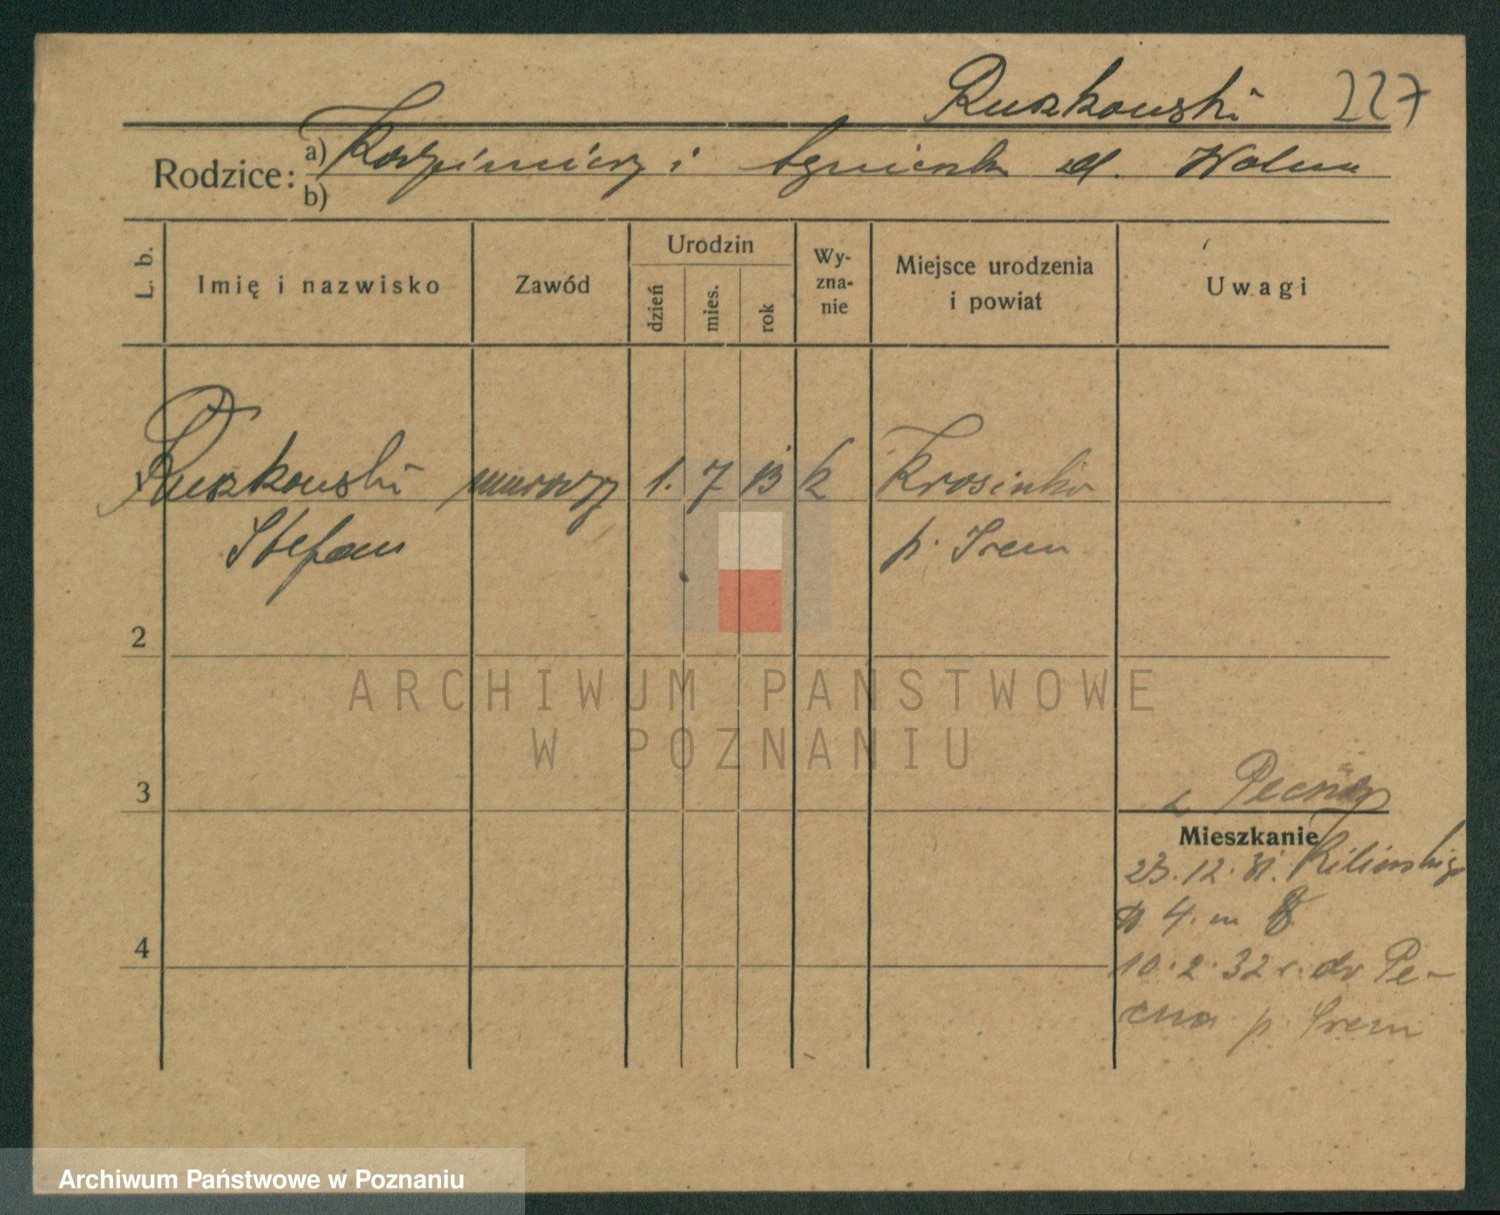 Ruszkowski 227
Rodzice: a) Kazimierz i Agnieszka d. Wolna
b)
L. b.
Imię i nazwisko
Zawód
Urodzin
dzień
mies.
rok
Wy-
zna-
nie
Miejsce urodzenia
i powiat
Uwagi
Ruszkowski murarz 1. 7 13 k Krosinko
Stefan p. Śrem
2
3
4
z Pecna
Mieszkanie
23.12.31. Kilińskiego
4. m 8
10.2.32 r. do Pe-
cna p. Śrem
ARCHIWUM PAŃSTWOWE
W POZNANIU
Archiwum Państwowe w Poznaniu